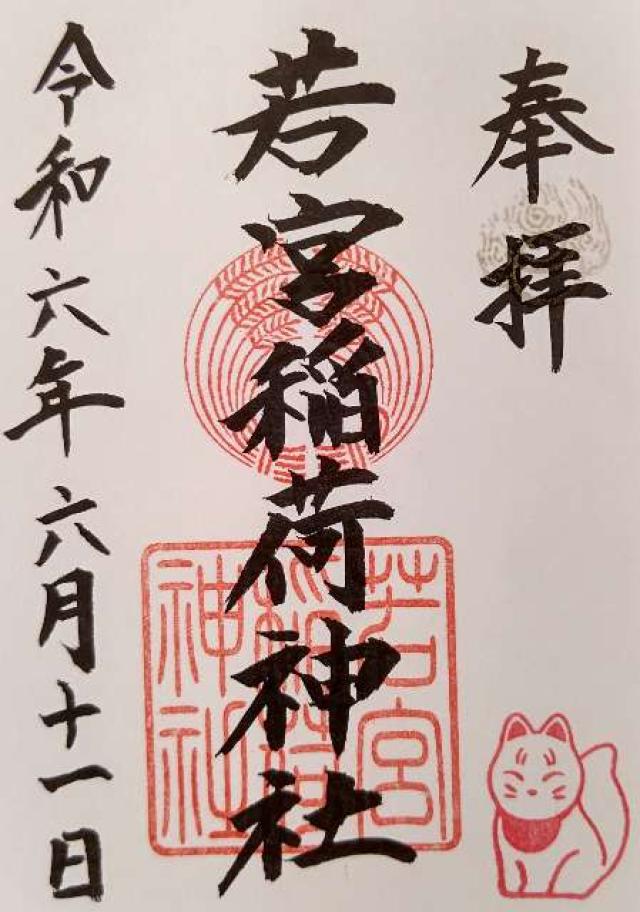 奉拝
若宮稲荷神社
若宮
稲荷
神社
令和六年六月十一日